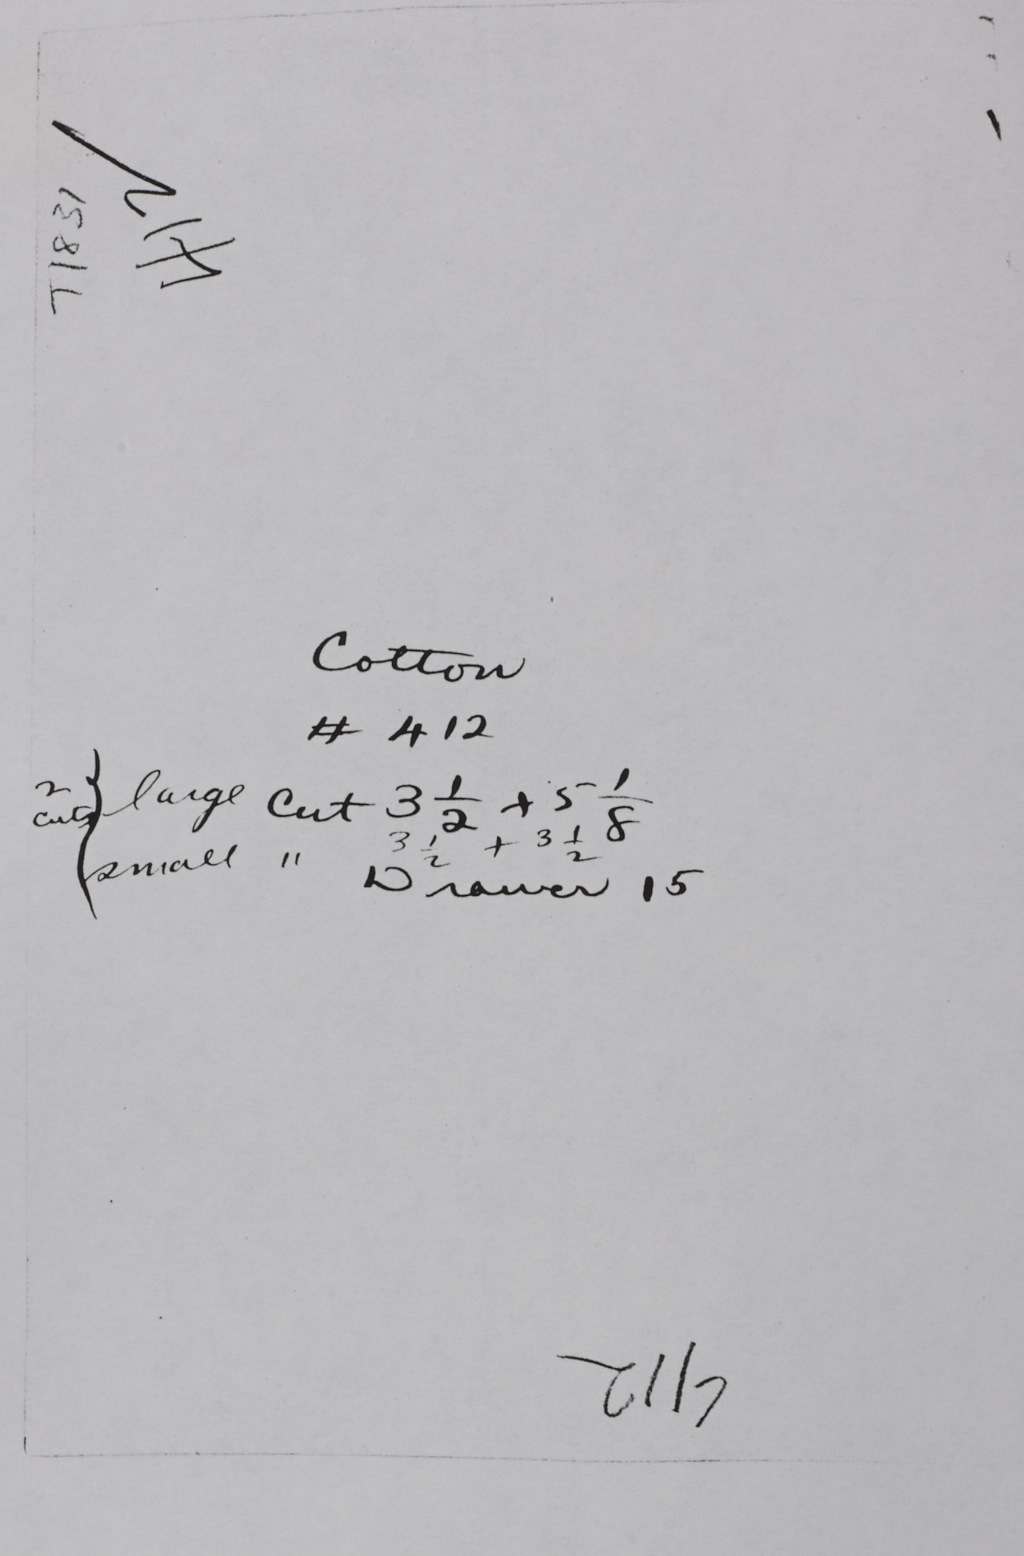 412
T1831
Cotton
# 412
2 cuts { large Cut 3 1/2 + 5 1/8
small " 3 1/2 + 3 1/2
Drawer 15
412